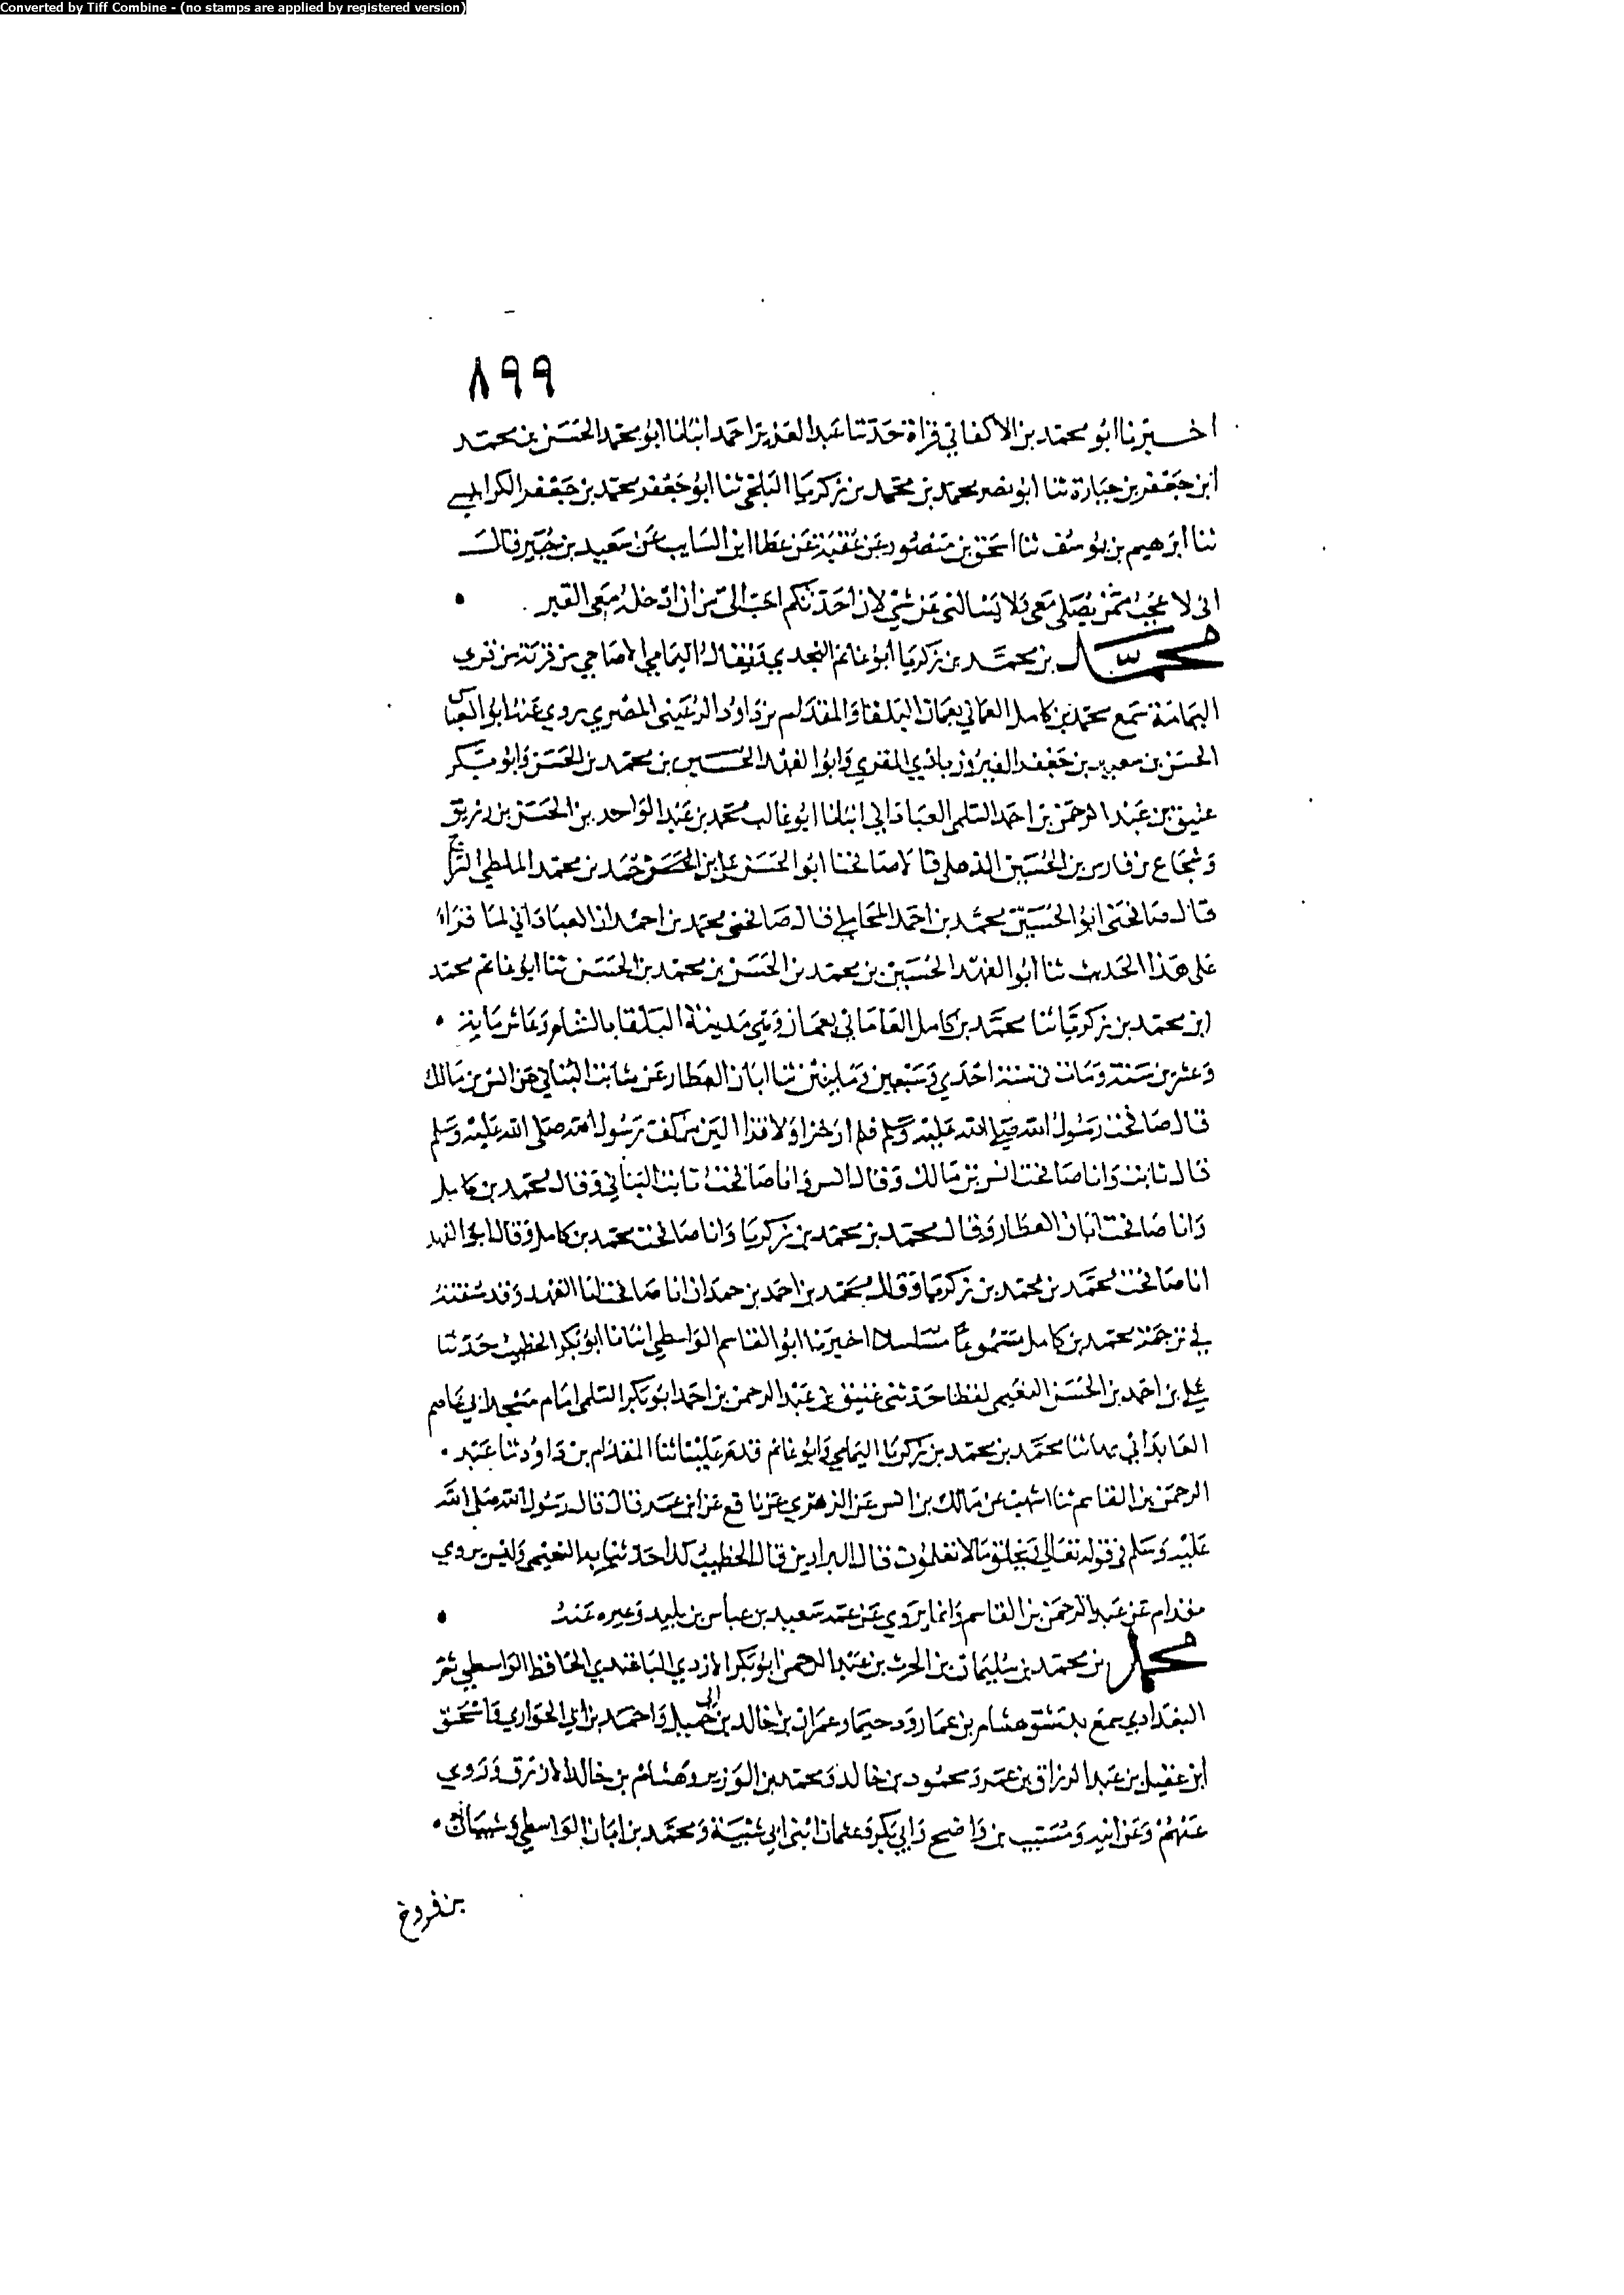 Converted by Tiff Combine - (no stamps are applied by registered version)
٨٩٩
اخبرنا ابو محمد بن الاكفاني قراة حدثنا عبد العزيز احمد انبانا ابو محمد الحسن بن محمد
ابن جعفر بن جبارة ثنا ابو نصر محمد بن محمد بن زكريا البلخي ثنا ابو جعفر محمد بن جعفر الكرابيسي
ثنا ابرهيم بن يوسف ثنا اسحق بن منصور عن عقبة عن عطا ابن السايب عن سعيد بن جبير قال
انى لا عجب ممن يصلى معى ولا يسالنى عن شي لان احدثكم احب الى من ان ادخله معى القبر
محمد بن محمد بن زكريا ابو غانم النجدي يقال اليمامي الاضاحي من قرية من قرى
اليمامة سمع محمد بن كامل العماني بعمان البلقا والمقدام بن داود الرعيني المصري روي عنه ابو العباس
الحسن بن سعيد بن جعفر الفيروزباذي المقري وابو الفهد الحسين بن محمد بن الحسن وابو بكر
عتيق بن عبد الرحمن بن احمد السلمي العباداني انبانا ابو غالب محمد بن عبد الواحد بن الحسن بن زريق
وشجاع بن فارس بن الحسين الذهلي قالا صافحنا ابو الحسن علي بن الحسن بن محمد بن محمد الملطي السراج
قال صافحني ابو الحسين محمد بن احمد المحاملي قال صافحني محمد بن احمد العباداني لما قراه
على هذا الحديث ثنا ابو الفهد الحسين بن محمد بن الحسن بن محمد بن الحسن ثنا ابو غانم محمد
ابن محمد بن زكريا ثنا محمد بن كامل العاماني بعمان وهي مدينة البلقا بالشام وعاش ماية
وعشرين سنة ومات في سنة احدي وسبعين ومايتين ثنا ابان العطار عن ثابت البناني عن انس بن مالك
قال صافحت رسول الله صلى الله عليه وسلم فلم ار خزا ولا قزا الين من كف رسول الله صلى الله عليه وسلم
قال ثابت وانا صافحت انس بن مالك وقال انس وانا صافحت ثابت البناني وقال محمد بن كامل
وانا صافحت ابان العطار وقال محمد بن محمد بن زكريا وانا صافحت محمد بن كامل وقال ابو الفهد
انا صافحت محمد بن محمد بن زكريا وقال محمد بن احمد بن حمدان انا صافحت ابا الفهد وقد سقته
في ترجمة محمد بن كامل مسموعا مسلسلا اخبرنا ابو القاسم الواسطي انبانا ابو بكر الخطيب حدثنا
علي بن احمد بن الحسن النعيمي لفظا حدثني عتيق بن عبد الرحمن بن احمد ابو بكر السلمي امام مسجد ابي عاصم
العباداني بها ثنا محمد بن محمد بن زكريا اليمامي وابو غانم قدم علينا ثنا المقدام بن داود ثنا عبد
الرحمن بن القاسم ثنا اشهب عن مالك بن انس عن الزهري عن نافع عن ابن عمر قال قال رسول الله صلى الله
عليه وسلم في قوله تعالى ويخلق ما لا تعلمون قال البراذين قال الخطيب كذا حدثنا به النعيمي وليس يروي
مقدام عن عبد الرحمن بن القاسم وانما يروي عن عمه سعيد بن عباس بن بليد وغيره عنه
محمد بن محمد بن سليمان بن الحرث بن عبد الرحمن ابو بكر الازدي الباغندي الحافظ الواسطي ثم
البغدادي سمع بدمشق هشام بن عمار ودحيما وعمران بن خالد بن ابي جميل واحمد بن ابي الحواري واسحق
ابن عقيل بن عبد الرزاق بن عمر ومحمود بن خالد ومحمد بن الوزير وهشام بن خالد الازرق وروي
عنهم وعن ابيه ومسيب بن واضح وابي بكر وعثمان ابنى ابي شيبة ومحمد بن ابان الواسطي وشيبان
بن فروخ